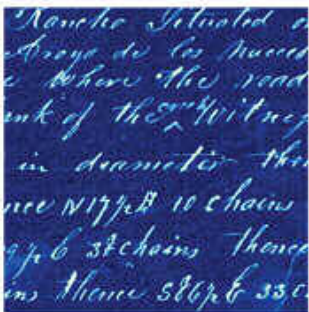 Rancho Situated o
Arroyo de los nueces
e Where the road
ank of the creek Witnes
in diameter then
nce N 17½ E 10 chains
9½ E 32 chains thence
ins thence S 86½ E 33 c